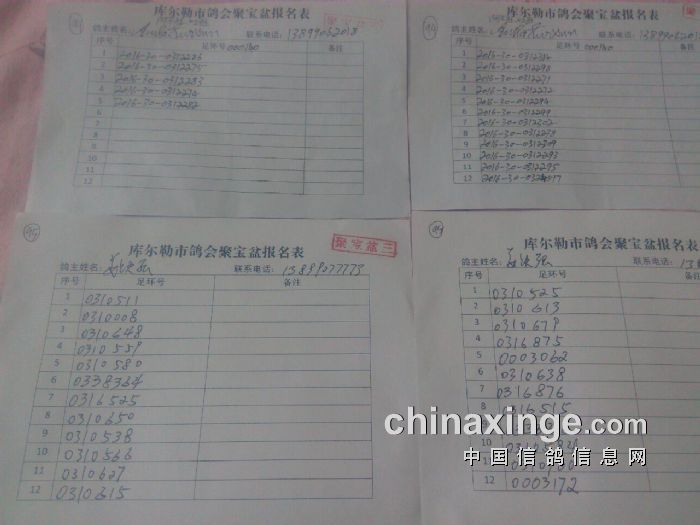 库尔勒市鸽会聚宝盆报名表
鸽主姓名： 联系电话：13899062018
序号 足环号 000160 备注
1 2016-30-0312226
2 2016-30-0312275
3 2016-30-0312283
4 2016-30-0312274
5 2016-30-0312282
6
7
8
9
10
11
12
库尔勒市鸽会聚宝盆报名表
鸽主姓名： 联系电话：1389906201
序号 足环号 备注
1
2 2016-30-0312298
3 2016-30-0312271
4 2016-30-0312272
5 2016-30-0312294
6 2016-30-0312299
7 2016-30-0312302
8 2016-30-0312279
9 2016-30-0312309
10 2016-30-0312293
11 2016-30-0312295
12
95
库尔勒市鸽会聚宝盆报名表
聚宝盆三
鸽主姓名： 联系电话：13899077773
序号 足环号 备注
1 0310511
2 0310008
3 0310648
4 0310559
5 0310580
6 0338364
7 0316525
8 0310650
9 0310538
10 0310566
11 0310627
12 0310615
库尔勒市鸽会聚宝盆报名表
鸽主姓名： 联系电话：138
序号 足环号 备注
1 0310525
2 0310613
3 0310679
4 0316875
5 0003062
6 0310638
7 0316876
8 0316515
10
12 0003172
chinaxinge.com
中国信鸽信息网